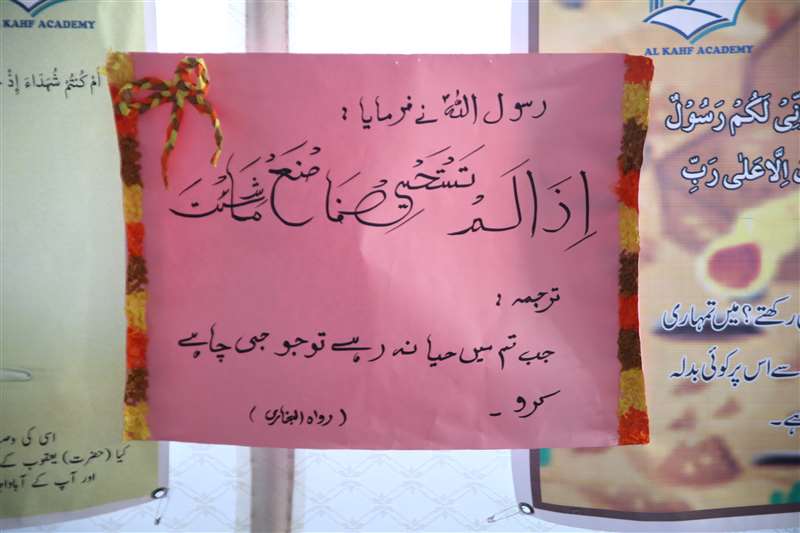 KAHF ACADEMY
اَمْ كُنْتُمْ شُهَدَآءَ اِذْ
اسی کی وصی
کیا (حضرت) یعقوب کے
اور آپ کے آباواجد
رسول اللہؐ نے فرمایا :
اِذَا لَمْ تَسْتَحْيِ فَاصْنَعْ مَا شِئْتَ
ترجمہ :
جب تم میں حیا نہ رہے تو جو جی چاہے
کرو ۔
( رواہ البخاری )
AL KAHF ACADEMY
لَكُمْ رَسُوْلٌ
اِلَّا عَلٰی رَبِّ
رکھتے؟ میں تمہاری
سے اس پر کوئی بدلہ
ہے۔